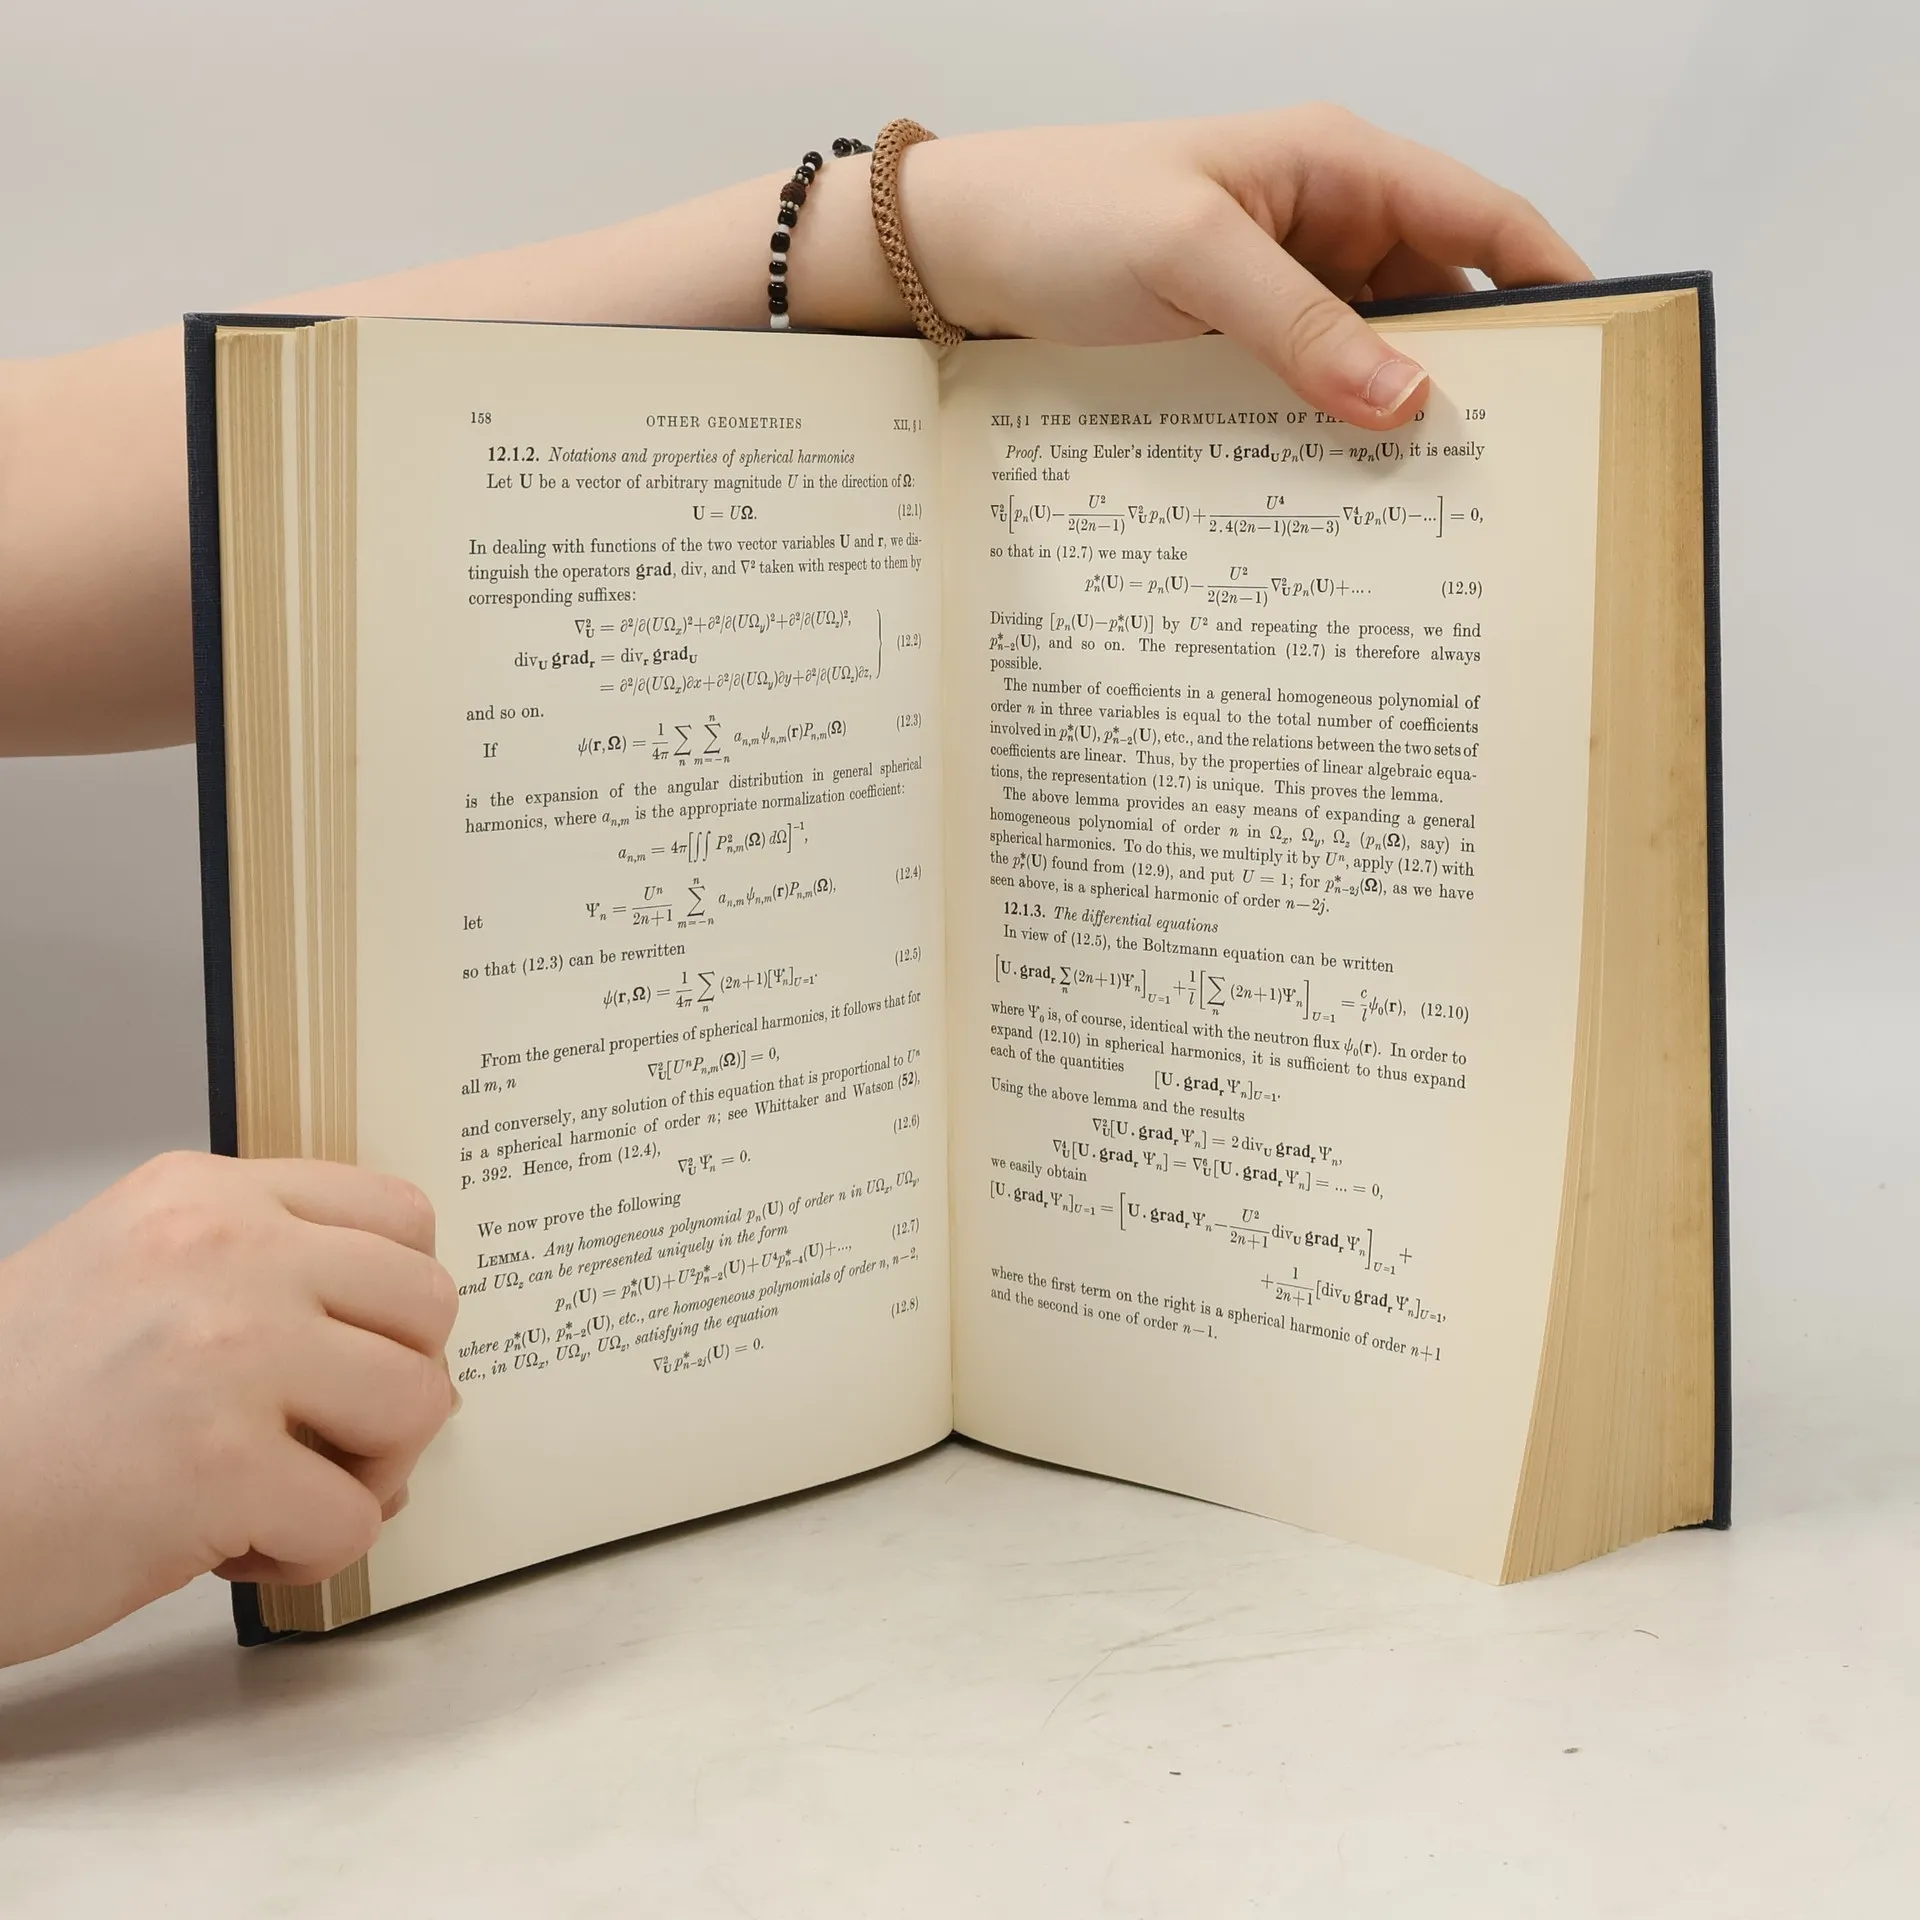 158 OTHER GEOMETRIES XII, § 1
12.1.2. Notations and properties of spherical harmonics
Let U be a vector of arbitrary magnitude U in the direction of Ω:
U = UΩ. (12.1)
In dealing with functions of the two vector variables U and r, we dis-
tinguish the operators grad, div, and ∇² taken with respect to them by
corresponding suffixes:
∇²_U = ∂²/∂(UΩ_x)²+∂²/∂(UΩ_y)²+∂²/∂(UΩ_z)²,
div_U grad_r = div_r grad_U (12.2)
= ∂²/∂(UΩ_x)∂x+∂²/∂(UΩ_y)∂y+∂²/∂(UΩ_z)∂z,
and so on.
If ψ(r,Ω) = 1/4π ∑_n ∑_{m=-n}^n a_{n,m} ψ_{n,m}(r)P_{n,m}(Ω) (12.3)
is the expansion of the angular distribution in general spherical
harmonics, where a_{n,m} is the appropriate normalization coefficient:
a_{n,m} = 4π[∫∫ P²_{n,m}(Ω) dΩ]^{-1},
let Ψ_n = U^n/(2n+1) ∑_{m=-n}^n a_{n,m} ψ_{n,m}(r)P_{n,m}(Ω), (12.4)
so that (12.3) can be rewritten
ψ(r,Ω) = 1/4π ∑_n (2n+1)[Ψ_n]_{U=1}. (12.5)
From the general properties of spherical harmonics, it follows that for
all m, n ∇²_U[U^n P_{n,m}(Ω)] = 0,
and conversely, any solution of this equation that is proportional to U^n
is a spherical harmonic of order n; see Whittaker and Watson (52),
p. 392. Hence, from (12.4),
∇²_U Ψ_n = 0. (12.6)
We now prove the following
LEMMA. Any homogeneous polynomial p_n(U) of order n in UΩ_x, UΩ_y,
and UΩ_z can be represented uniquely in the form
p_n(U) = p*_n(U)+U²p*_{n-2}(U)+U⁴p*_{n-4}(U)+..., (12.7)
where p*_n(U), p*_{n-2}(U), etc., are homogeneous polynomials of order n, n-2,
etc., in UΩ_x, UΩ_y, UΩ_z, satisfying the equation
∇²_U p*_{n-2j}(U) = 0. (12.8)
XII, § 1 THE GENERAL FORMULATION OF 159
Proof. Using Euler's identity U . grad_U p_n(U) = np_n(U), it is easily
verified that
∇²_U[p_n(U)−U²/2(2n−1) ∇²_U p_n(U)+U⁴/2.4(2n−1)(2n−3) ∇⁴_U p_n(U)−...] = 0,
so that in (12.7) we may take
p*_n(U) = p_n(U)−U²/2(2n−1) ∇²_U p_n(U)+.... (12.9)
Dividing [p_n(U)−p*_n(U)] by U² and repeating the process, we find
p*_{n-2}(U), and so on. The representation (12.7) is therefore always
possible.
The number of coefficients in a general homogeneous polynomial of
order n in three variables is equal to the total number of coefficients
involved in p*_n(U), p*_{n-2}(U), etc., and the relations between the two sets of
coefficients are linear. Thus, by the properties of linear algebraic equa-
tions, the representation (12.7) is unique. This proves the lemma.
The above lemma provides an easy means of expanding a general
homogeneous polynomial of order n in Ω_x, Ω_y, Ω_z (p_n(Ω), say) in
spherical harmonics. To do this, we multiply it by U^n, apply (12.7) with
the p*_r(U) found from (12.9), and put U = 1; for p*_{n-2j}(Ω), as we have
seen above, is a spherical harmonic of order n−2j.
12.1.3. The differential equations
In view of (12.5), the Boltzmann equation can be written
[U . grad_r ∑_n (2n+1)Ψ_n]_{U=1} + 1/l [∑_n (2n+1)Ψ_n]_{U=1} = c/l ψ_0(r), (12.10)
where Ψ_0 is, of course, identical with the neutron flux ψ_0(r). In order to
expand (12.10) in spherical harmonics, it is sufficient to thus expand
each of the quantities
[U . grad_r Ψ_n]_{U=1}.
Using the above lemma and the results
∇²_U[U . grad_r Ψ_n] = 2 div_U grad_r Ψ_n,
∇⁴_U[U . grad_r Ψ_n] = ∇⁶_U[U . grad_r Ψ_n] = ... = 0,
we easily obtain
[U . grad_r Ψ_n]_{U=1} = [U . grad_r Ψ_n − U²/(2n+1) div_U grad_r Ψ_n]_{U=1} +
+ 1/(2n+1) [div_U grad_r Ψ_n]_{U=1},
where the first term on the right is a spherical harmonic of order n+1
and the second is one of order n−1.